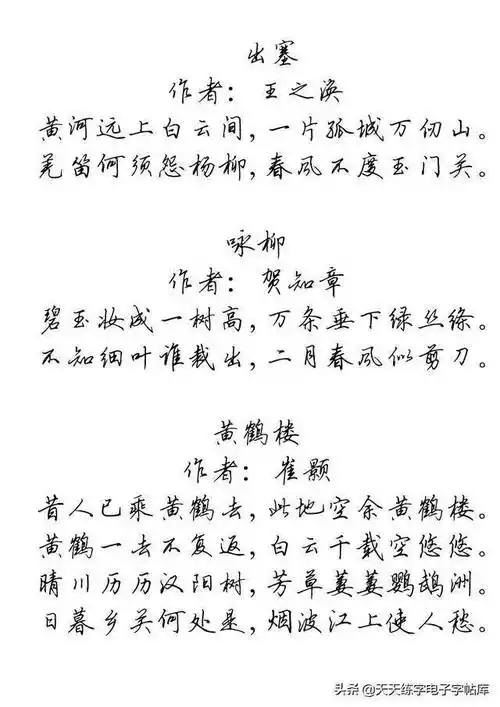 出塞
作者：王之涣
黄河远上白云间，一片孤城万仞山。
羌笛何须怨杨柳，春风不度玉门关。
咏柳
作者：贺知章
碧玉妆成一树高，万条垂下绿丝绦。
不知细叶谁裁出，二月春风似剪刀。
黄鹤楼
作者：崔颢
昔人已乘黄鹤去，此地空余黄鹤楼。
黄鹤一去不复返，白云千载空悠悠。
晴川历历汉阳树，芳草萋萋鹦鹉洲。
日暮乡关何处是，烟波江上使人愁。
头条 @天天练字电子字帖库